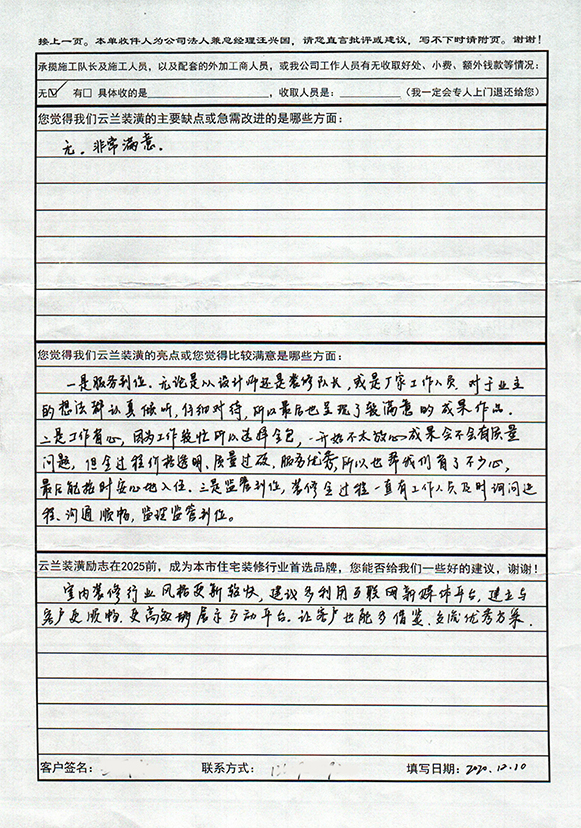 接上一页。本单收件人为公司法人兼总经理汪兴国，请您直言批评或建议，写不下时请附页。谢谢！
承揽施工队长及施工人员，以及配套的外加工商人员，或我公司工作人员有无收取好处、小费、额外钱款等情况：
无☑ 有□ 具体收的是____，收取人员是：____（我一定会专人上门退还给您）
您觉得我们云兰装潢的主要缺点或急需改进的是哪些方面：
无。非常满意.
您觉得我们云兰装潢的亮点或您觉得比较满意是哪些方面：
一是服务到位.无论是从设计师还是装修队长，或是厂家工作人员.对于业主
的想法都认真倾听，仔细对待，所以最后也呈现了较满意的成果作品.
二是工作省心，因为工作较忙所以选择全包，一开始不太放心成果会不会有质量
问题，但全过程价格透明、质量过硬、服务优秀，所以也帮我们省了不少心，
最后能按时安心地入住。三是监管到位，装修全过程一直有工作人员及时询问进
程、沟通顺畅，监理监管到位。
云兰装潢励志在2025前，成为本市住宅装修行业首选品牌，您能否给我们一些好的建议，谢谢！
室内装修行业风格更新较快，建议多利用互联网新媒体平台，建立与
客户更顺畅.更高效的展示互动平台。让客户也能多借鉴.交流优秀方案.
客户签名： 联系方式： 填写日期：2020.12.10